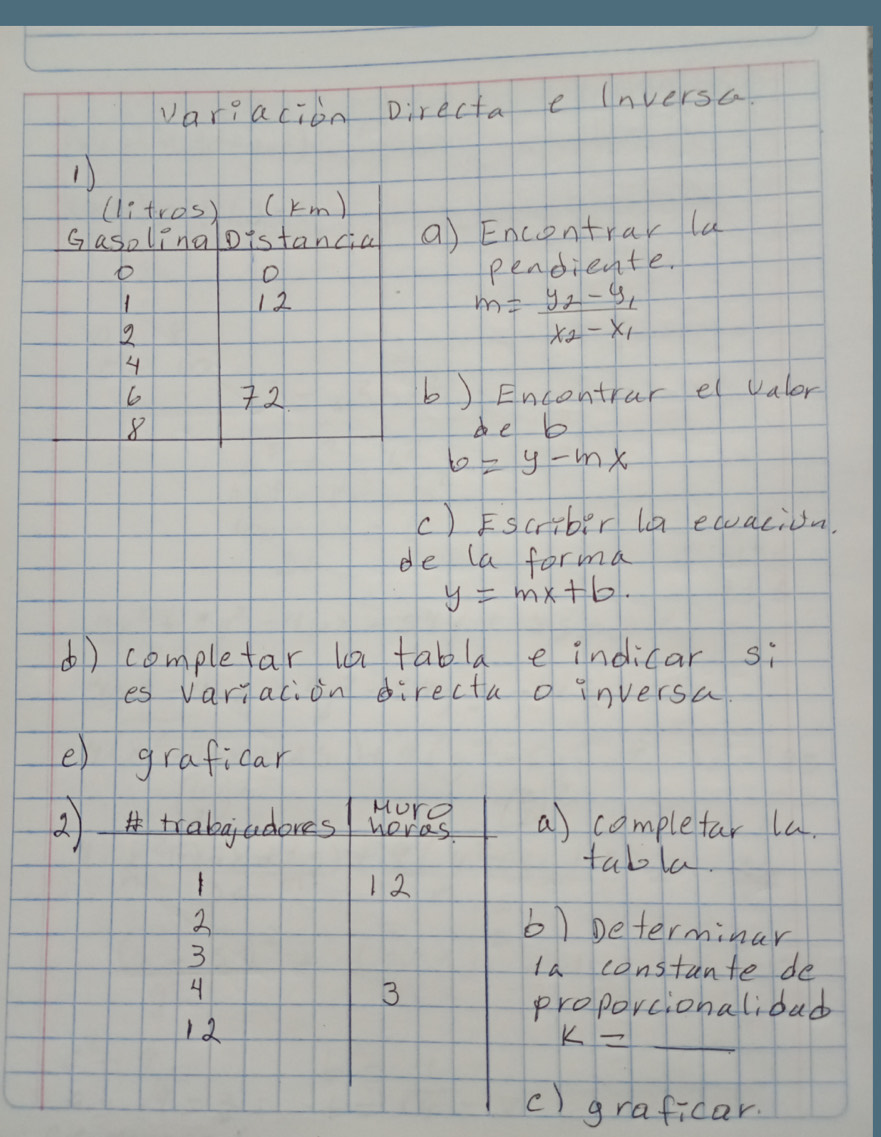 Variación Directa e Inversa.
1)
(litros) (km)
Gasolina Distancia
0 0
1 12
2
4
6 72.
8
a) Encontrar la
pendiente.
m = y₂ - y₁
x₂ - x₁
b) Encontrar el valor
de b
b = y - mx
c) Escribir la ecuación.
de la forma
y = mx + b.
d) completar la tabla e indicar si
es variación directa o inversa.
e) graficar
2) # trabajadores Muro horas.
1 12
2
3
4 3
12
a) completar la.
tabla.
b) Determinar
la constante de
proporcionalidad
K = ____
c) graficar.